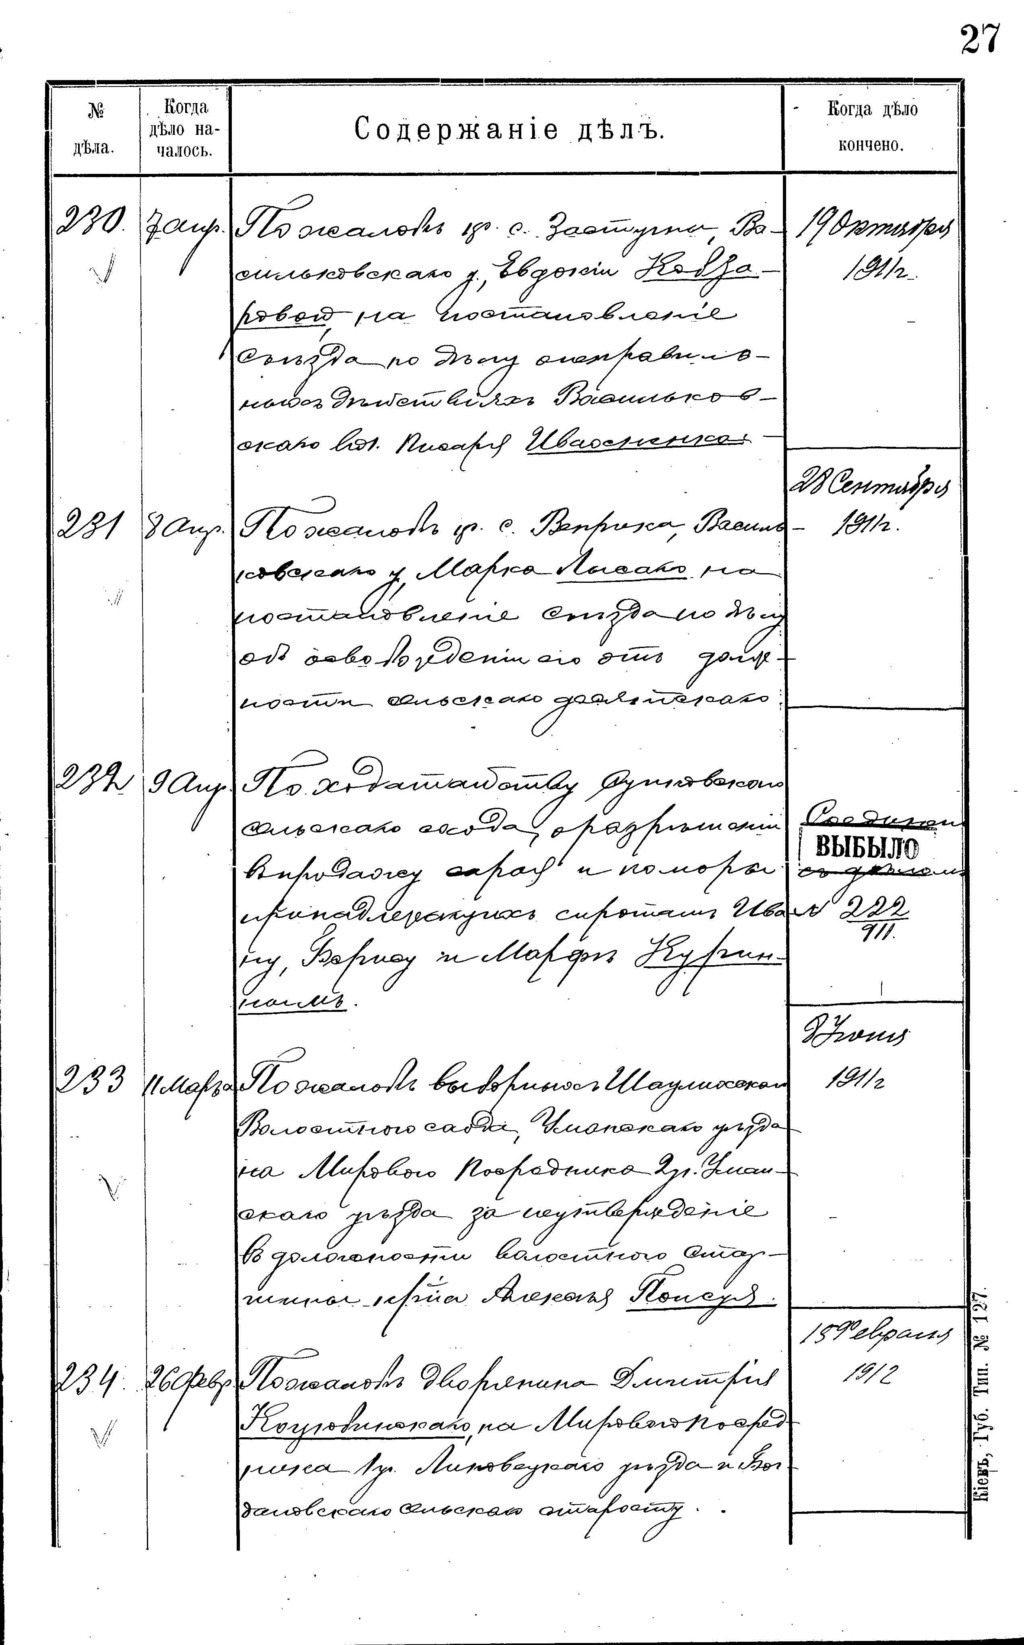 27
№ дѣла.
Когда дѣло началось.
Содержаніе дѣлъ.
Когда дѣло кончено.
230. 7 Апр. По жалобѣ кр. с. Застугны, Ва-
сильковскаго у., Евдокіи Кобза-
ровой, на постановленіе
съѣзда по дѣлу о неправиль-
ныхъ дѣйствіяхъ Васильков-
скаго вол. писаря
19 Октября
1911 г.
231 8 Апр. По жалобѣ кр. с. Веприка, Василь-
ковскаго у. Марка Лысако на
постановленіе съѣзда по дѣлу
объ освобожденіи его отъ долж-
ности сельскаго десятскаго
28 Сентября
1911 г.
232 9 Апр. По ходатайству
сельскаго схода, о разрѣшеніи
въ продажу сарая и коморы
принадлежащихъ сиротамъ Ива-
ну, Борису и Марфѣ Куфин-
нымъ.
Соединен
ВЫБЫЛО
съ дѣломъ
№ 222
911.
233 11 Марта По жалобѣ выборныхъ
Волостного схода, Уманскаго уѣзда
на Мирового Посредника 2 уч. Уман-
скаго уѣзда за неутвержденіе
въ должности волостного Стар-
шины кр-на Алексѣя
8 Іюня
1911 г
234. 26 Февр По жалобѣ дворянина Дмитрія
Коцюбинскаго, на Мирового посред-
ника 1 уч. Липовецкаго уѣзда и Бог-
дановскаго сельскаго старосту.
15 Февраля
1912
Кіевъ, Губ. Тип. № 127.